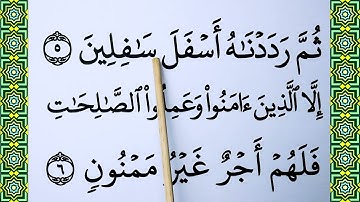 ثُمَّ رَدَدْنَٰهُ أَسْفَلَ سَٰفِلِينَ ٥
إِلَّا ٱلَّذِينَ ءَامَنُوا۟ وَعَمِلُوا۟ ٱلصَّٰلِحَٰتِ
فَلَهُمْ أَجْرٌ غَيْرُ مَمْنُونٍ ٦